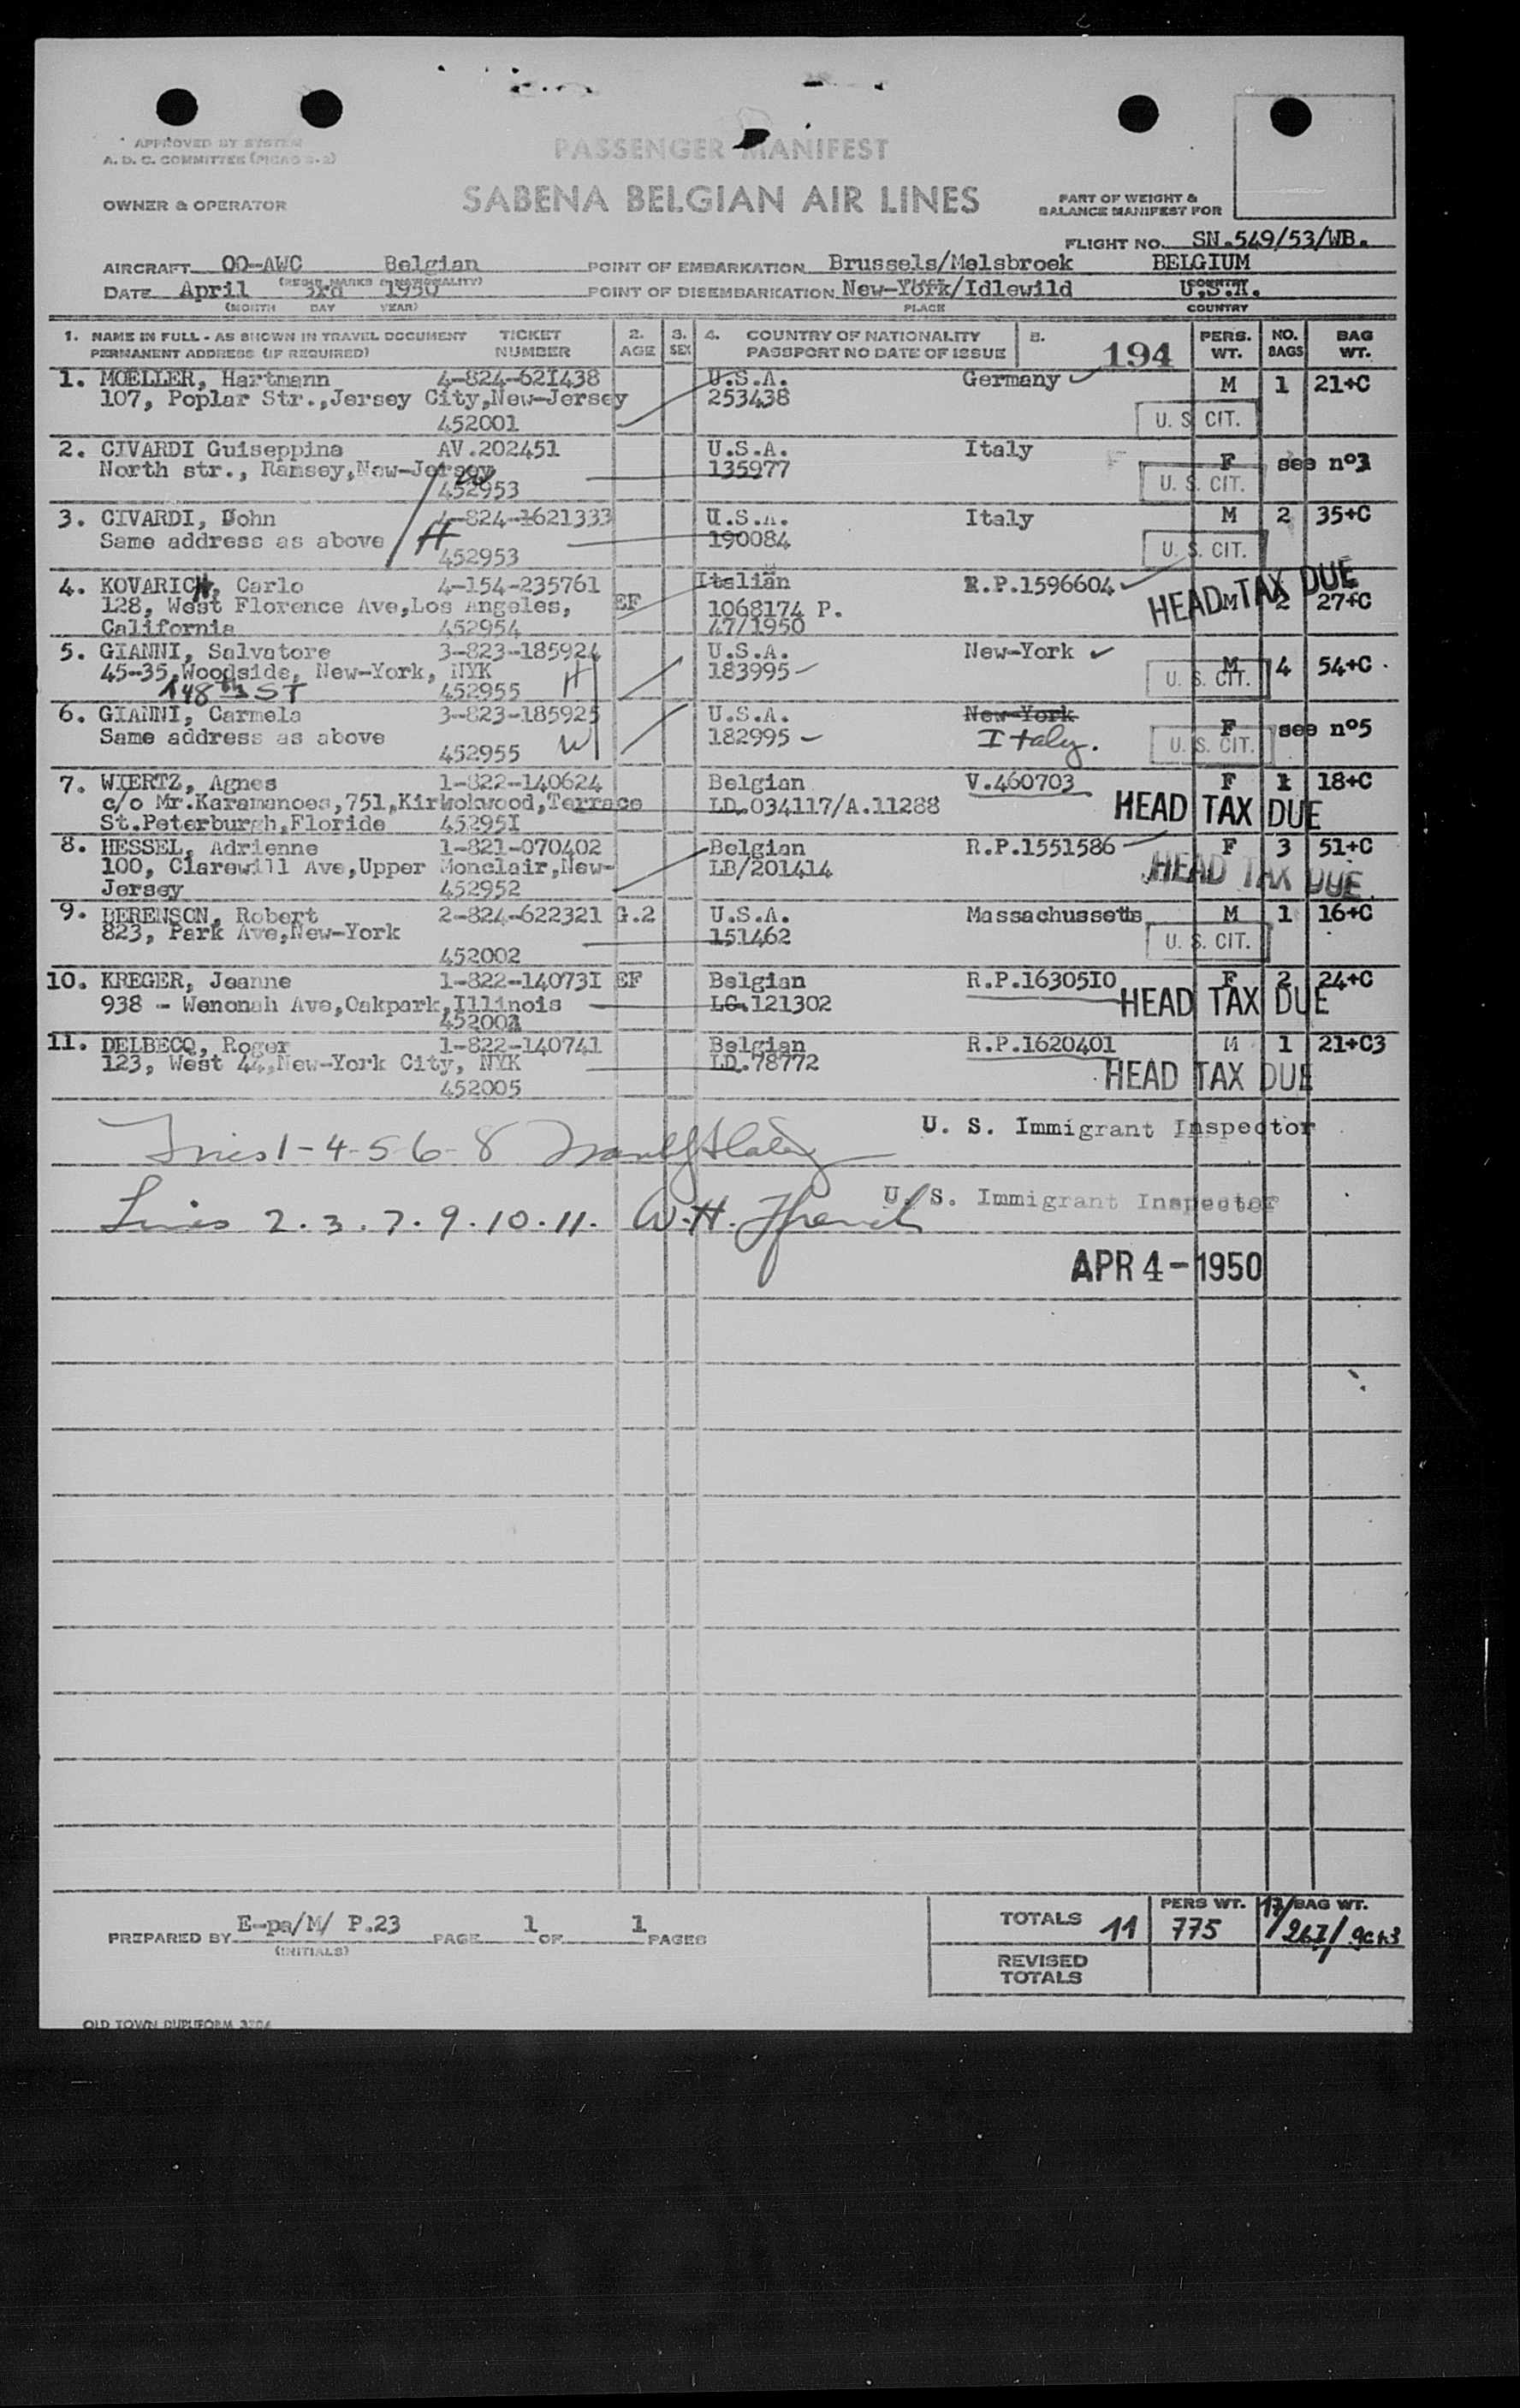 APPROVED BY SYSTEM
A. D. C. COMMITTEE (PICAO 2-2)
PASSENGER MANIFEST
OWNER & OPERATOR
SABENA BELGIAN AIR LINES
PART OF WEIGHT &
BALANCE MANIFEST FOR
FLIGHT NO. SN.549/53/WB.
AIRCRAFT OO-AWC Belgian POINT OF EMBARKATION Brussels/Melsbroek BELGIUM
(REGIS. MARKS & NATIONALITY) PLACE COUNTRY
DATE April 3rd 1950 POINT OF DISEMBARKATION New-York/Idlewild U.S.A.
(MONTH DAY YEAR) PLACE COUNTRY
1. NAME IN FULL - AS SHOWN IN TRAVEL DOCUMENT TICKET 2. 3. 4. COUNTRY OF NATIONALITY 5. PERS. NO. BAG
PERMANENT ADDRESS (IF REQUIRED) NUMBER AGE SEX PASSPORT NO DATE OF ISSUE 194 WT. BAGS WT.
1. MOELLER, Hartmann 4-824-621438 U.S.A. Germany M 1 21+C
107, Poplar Str.,Jersey City,New-Jersey 253438
452001 U. S. CIT.
2. CIVARDI Guiseppina AV.202451 U.S.A. Italy F see n°3
North str., Ramsey,New-Jersey W 135977
452953 U. S. CIT.
3. CIVARDI, John 4-824-1621333 U.S.A. Italy M 2 35+C
Same address as above H 190084
452953 U. S. CIT.
4. KOVARICH, Carlo 4-154-235761 Italian R.P.1596604 HEAD TAX DUE
128, West Florence Ave,Los Angeles, EF 1068174 P. M 2 27+C
California 452954 47/1950
5. GIANNI, Salvatore 3-823-185924 U.S.A. New-York
45-35,Woodside, New-York, NYK H 183995 M 4 54+C
148th ST 452955 U. S. CIT.
6. GIANNI, Carmela 3-823-185925 U.S.A. New-York
Same address as above 182995 Italy. F see n°5
452955 W U. S. CIT.
7. WIERTZ, Agnes 1-822-140624 Belgian V.460703 F 1 18+C
c/o Mr.Karamanoes,751,Kirkokwood,Terrace LD.034117/A.11288 HEAD TAX DUE
St.Peterburgh,Floride 45295I
8. HESSEL, Adrienne 1-821-070402 Belgian R.P.1551586 F 3 51+C
100, Clarewill Ave,Upper Monclair,New- LB/201414 HEAD TAX DUE
Jersey 452952
9. BERENSON, Robert 2-824-622321 G.2 U.S.A. Massachussetts M 1 16+C
823, Park Ave,New-York 151462
452002 U. S. CIT.
10. KREGER, Jeanne 1-822-14073I EF Belgian R.P.16305I0 F 2 24+C
938 - Wenonah Ave,Oakpark,Illinois LC.121302 HEAD TAX DUE
11. DELBECQ, Roger 1-822-140741 Belgian R.P.1620401 M 1 21+C3
123, West 44,New-York City, NYK LD.78772 HEAD TAX DUE
452005
U. S. Immigrant Inspector
Lines 1-4-5-6-8
U. S. Immigrant Inspector
Lines 2.3.7.9.10.11. W.H. French
APR 4-1950
PREPARED BY E-pa/M/ P.23 PAGE 1 OF 1 PAGES
(INITIALS)
TOTALS 11 PERS WT. 775 17/ BAG WT. 267/9C+3
REVISED
TOTALS
OLD TOWN DUPLIFORM